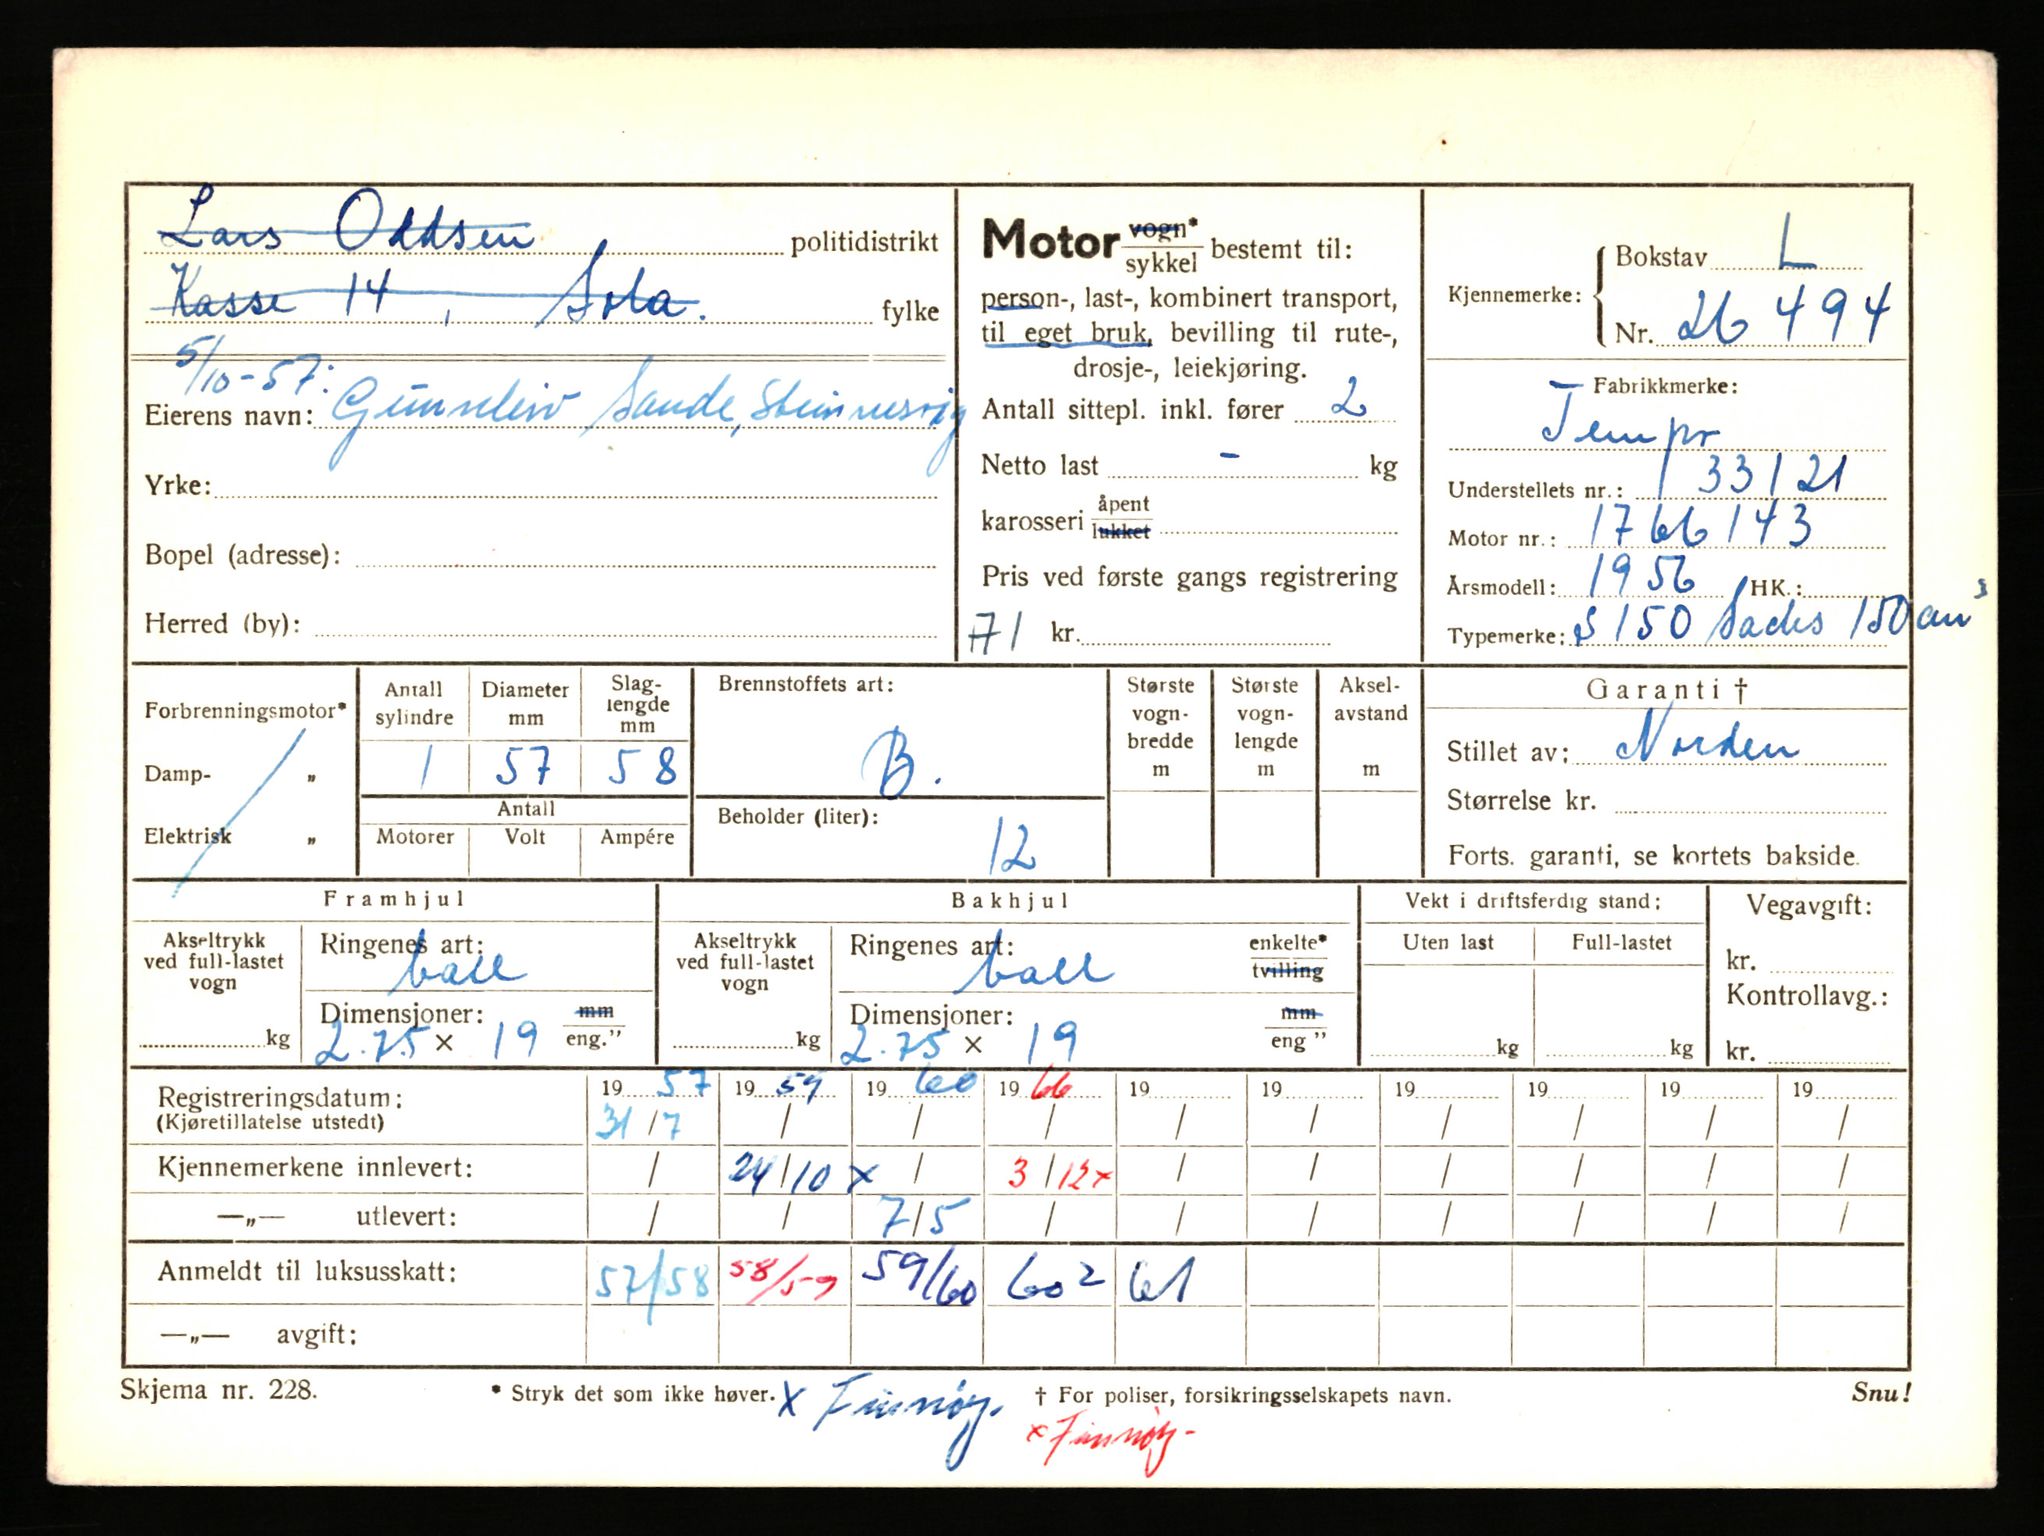 Lars Oddsen politidistrikt
Kasse 14, Sola. fylke
5/10-57:
Eierens navn: Gunnleiv Sande, Steinnesvåg
Yrke:
Bopel (adresse):
Herred (by):
Motor vogn* / sykkel bestemt til:
person-, last-, kombinert transport,
til eget bruk, bevilling til rute-,
drosje-, leiekjøring.
Antall sittepl. inkl. fører 2
Netto last - kg
karosseri åpent / lukket
Pris ved første gangs registrering
A71 kr.
Kjennemerke: Bokstav L
Nr. 26494
Fabrikkmerke:
Tempo
Understellets nr.: 133121
Motor nr.: 1766143
Årsmodell: 1956 HK.:
Typemerke: S 150 Sachs 150 cm³
Forbrenningsmotor*
Damp- „
Elektrisk „
Antall sylindre Diameter mm Slag-lengde mm
1 57 58
Antall
Motorer Volt Ampére
Brennstoffets art:
B.
Beholder (liter):
12
Største vogn-bredde m
Største vogn-lengde m
Aksel-avstand m
Garanti †
Stillet av: Norden
Størrelse kr.
Forts. garanti, se kortets bakside.
Framhjul
Akseltrykk ved full-lastet vogn
kg
Ringenes art:
ball
Dimensjoner: mm / eng.”
2.75 x 19
Bakhjul
Akseltrykk ved full-lastet vogn
kg
Ringenes art: enkelte* / tvilling
ball
Dimensjoner: mm / eng ”
2.75 x 19
Vekt i driftsferdig stand:
Uten last Full-lastet
kg kg
Vegavgift:
kr.
Kontrollavg.:
kr.
Registreringsdatum: 19 57 19 59 19 60 19 66 19 19 19 19 19 19
(Kjøretillatelse utstedt) 31/7 / / / / / / / / /
Kjennemerkene innlevert: / 24/10 x / 3/12x / / / / / /
—„— utlevert: / / 7/5 / / / / / / /
Anmeldt til luksusskatt: 57/58 58/59 59/60 60² 61
—„— avgift:
Skjema nr. 228. * Stryk det som ikke høver. x Finnøy. † For poliser, forsikringsselskapets navn. Snu!
x Finnøy-